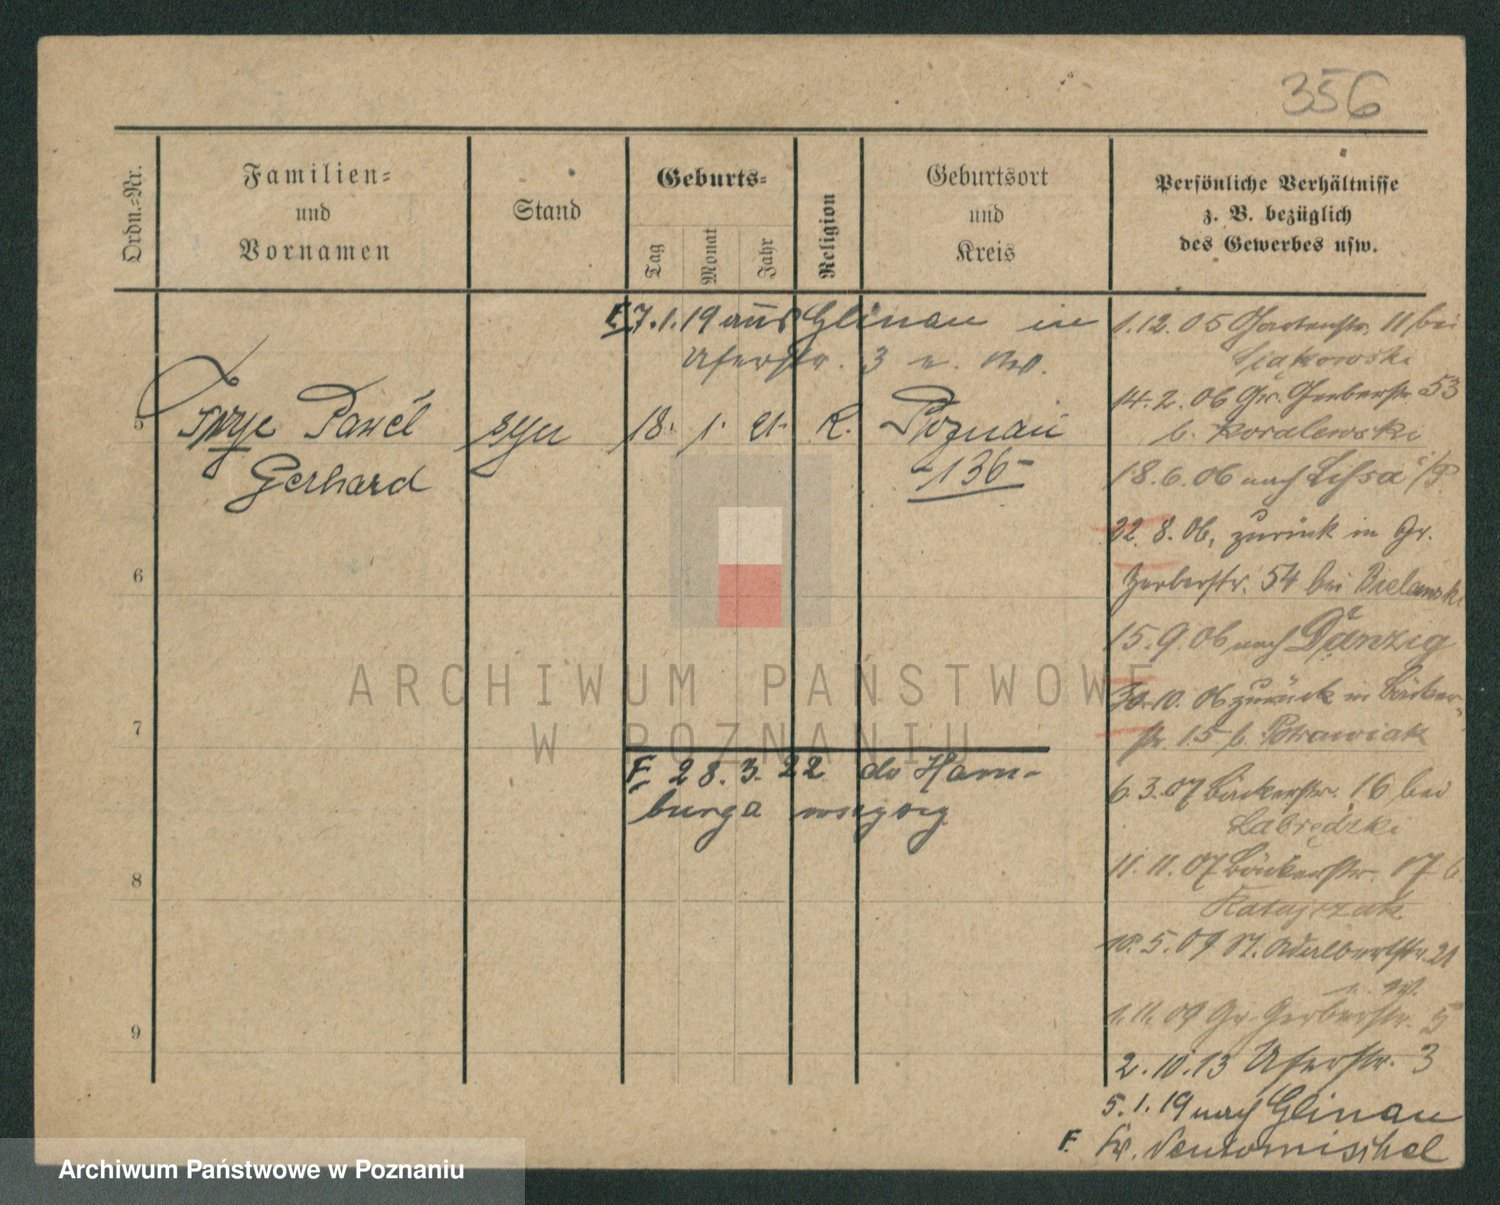 356
Ordn.=Nr.
Familien=
und
Vornamen
Stand
Geburts=
Tag
Monat
Jahr
Religion
Geburtsort
und
Kreis
Persönliche Verhältnisse
z. B. bezüglich
des Gewerbes usw.
F. 7.1.19 aus Glinau in
Uferstr. 3 e. Nw.
5
Paweł
Gerhard
syn
18. 1. 21. K. Poznań
-136-
6
7
F. 28.3.22 do Ham-
burga
8
9
1.12.05 Gartenstr. 11 bei
14.2.06 Gr. Gerberstr. 53
b. Koralewski
18.6.06 nach Lissa i/P
22.8.06, zurück in Gr.
Gerberstr. 54 bei Bielawski
15.9.06 nach Danzig
30.10.06 zurück in Bäcker-
str. 15 b. Potrawiak
6.3.07 Bäckerstr. 16 bei
11.11.07 Bäckerstr. 17 b
Ratajczak
10.5.09 St. Adalbertstr. 21
1.11.09 Gr. Gerberstr. 5
2.10.13 Uferstr. 3
5.1.19 nach Glinau
F. Kr. Neutomischel
ARCHIWUM PAŃSTWOWE
W POZNANIU
Archiwum Państwowe w Poznaniu